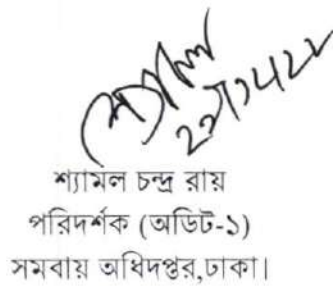 শ্যামল
শ্যামল চন্দ্র রায়
পরিদর্শক (অডিট-১)
সমবায় অধিদপ্তর,ঢাকা।